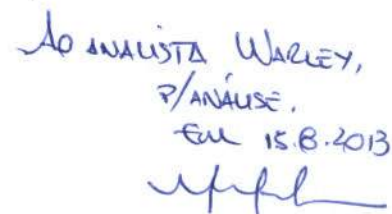 Ao analista Warley,
p/análise.
Em 15.8.2013